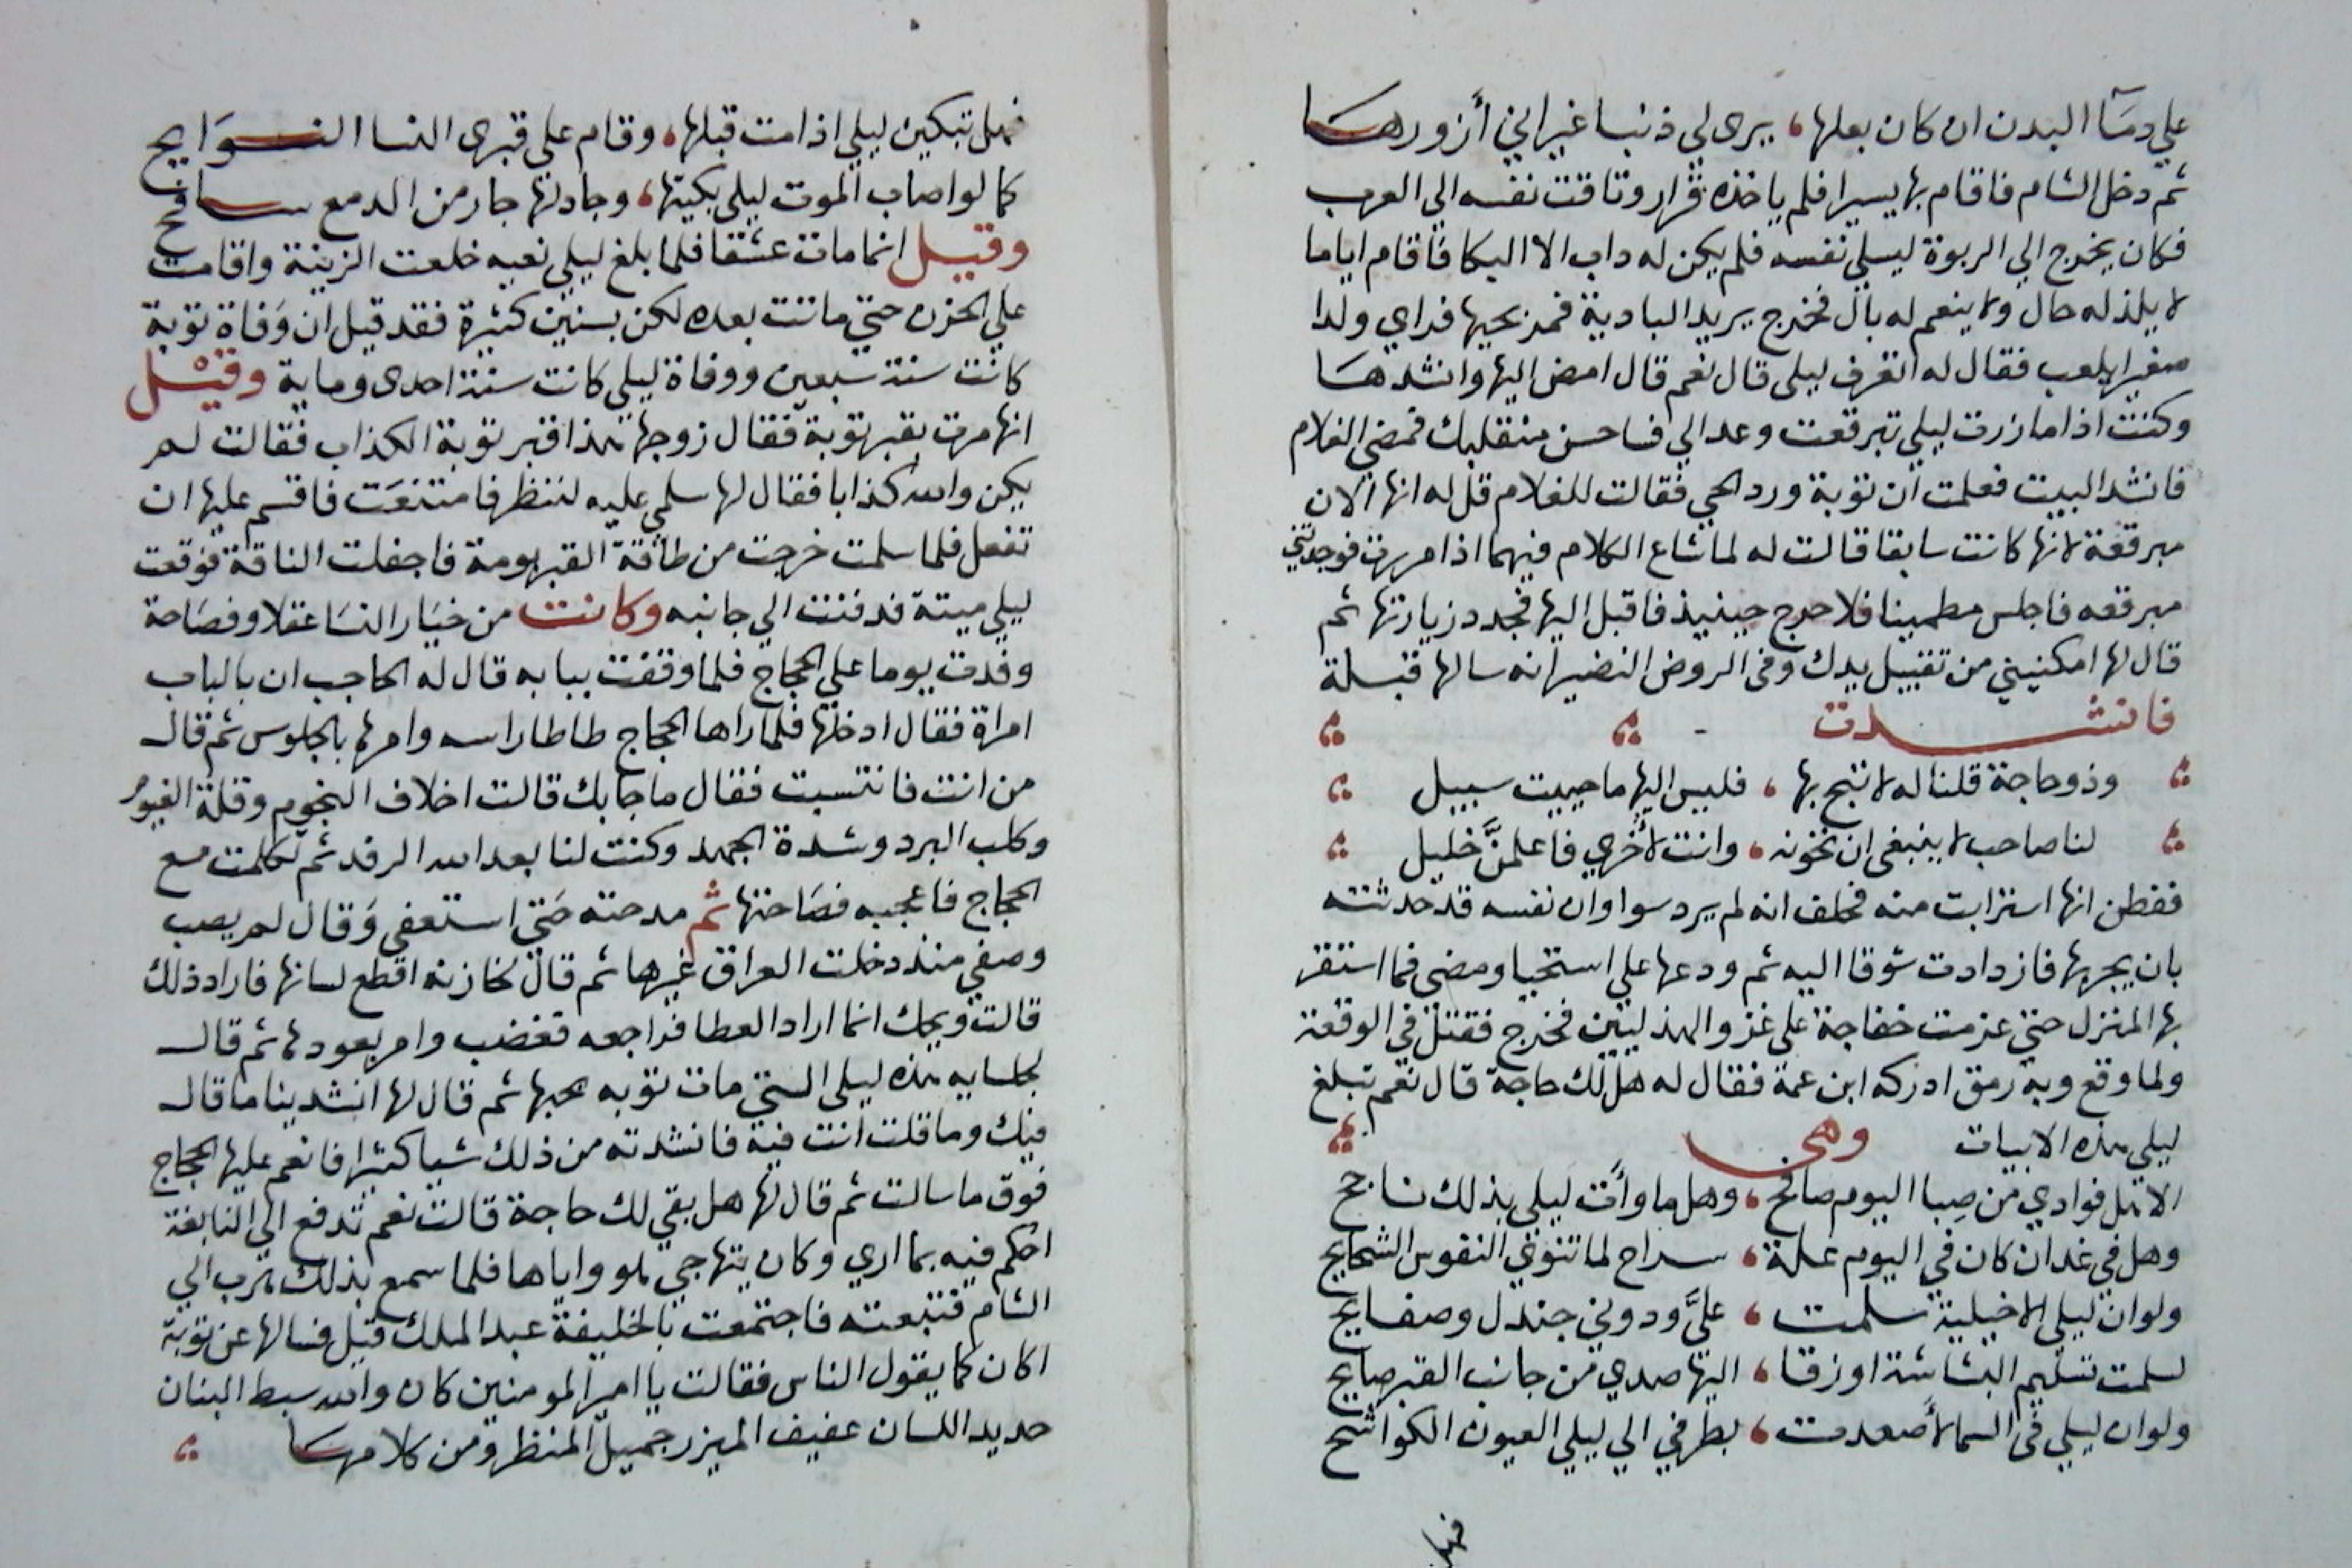 علي دمآ البدن ان كان بعلها، يري لي ذنبا غير اني أزورها
ثم دخل الشام فاقام بها يسيرا فلم ياخذه قرار وتاقت نفسه الي العرب
فكان يخرج الي الربوة ليسلي نفسه فلم يكن له داب الا البكا فاقام اياما
لا يلذ له حال ولا ينعم له بال فخرج يريد البادية فمر بحيها فراي ولدا
صغيرا يلعب فقال له اتعرف ليلي قال نعم قال امض اليها وانشدها
وكنت اذا ما زرت ليلي تبرقعت وعد الي فاحسن منقلبك فمضي الغلام
فانشد البيت فعلمت ان توبة ورد الحي فقالت للغلام قل له انها الان
مبرقعة لانها كانت سابقا قالت له لما شاع الكلام فيهما اذا مررت فوجدتني
مبرقعه فاجلس مطمينا فلا حرج حينيذ فاقبل اليها فجدد زيارتها ثم
قال لها امكنيني من تقبيل يدك وفي الروض النضير انه سالها قبلة
فانشدت
وذو حاجة قلنا له لا تبح بها، فليس اليها ما حييت سبيل
لنا صاحب لا ينبغي ان نخونه، وانت لأخري فاعلمنَّ خليل
ففطن انها استرابت منه فحلف انه لم يرد سوا وان نفسه قد حدثته
بان يجربها فازدادت شوقا اليه ثم ودعها علي استحيا ومضي فما استقر
بها المنزل حتي عزمت خفاجة علي غزو الهذليين فخرج فقتل في الوقعة
ولما وقع وبه رمق ادركه ابن عمة فقال له هل لك حاجة قال نعم تبلغ
ليلي هذه الابيات وهي
الا هل فوادي من صِبا اليوم صافح، وهل ما وأت ليلي بذلك ناجح
وهل في غد ان كان في اليوم علة، سراح لما تنوي النفوس الشحايح
ولو ان ليلي الاخيلية سلمت، عليَّ ودوني جندل وصفايح
لسلمت تسليم البشاشة او زقا، اليها صدي من جانب القبر صايح
ولو ان ليلي في السما لأصعدت، بطرفي الي ليلي العيون الكواشح
فهل
فهل تبكين ليلي اذا مت قبلها، وقام علي قبري النسا النوَايح
كما لو اصاب الموت ليلي بكيتها، وجاد لها جار من الدمع سافح
وقيل انما مات عشقا فلما بلغ ليلي نعيه خلعت الزينة واقامت
علي الحزن حتي ماتت بعده لكن بسنين كثيرة فقد قيل ان وَفاة توبة
كانت سنة سبعين ووفاة ليلي كانت سنة احدي وماية وقيل
انها مرت بقبر توبة فقال زوجها هذا قبر توبة الكذاب فقالت لم
يكن والله كذابا فقال لها سلمي عليه لننظر فامتنعَت فاقسم عليها ان
تفعل فلما سلمت خرجت من طاقة القبر بومة فاجفلت الناقة فوقعت
ليلي ميتة فدفنت الي جانبه وكانت من خيَار النسَا عقلا وفصَاحة
وفدت يوما علي الحجاج فلما وقفت ببابه قال له الحاجب ان بالباب
امراة فقال ادخلها فلما راها الحجاج طاطا راسه وامرها بالجلوس ثم قال
من انت فانتسبت فقال ما جا بك قالت اخلاف النجوم وقلة الغيوم
وكلب البرد وشدة الجهد وكنت لنا بعد الله الرفد ثم تكلمت مع
الحجاج فاعجبه فصَاحتها ثم مدحته حَتي استعفي وَقال لم يصب
وصفي منذ دخلت العراق غيرها ثم قال لخازنه اقطع لسانها فاراد ذلك
قالت ويحك انما اراد العطا فراجعه فغضب وامر بعودها ثم قال
لجلسايه هذه ليلي التي مات توبه بحبها ثم قال لها انشدينا ما قال
فيك وما قلت انت فيه فانشدته من ذلك شيا كثيرا فانعم عليها الحجاج
فوق ما سالت ثم قال لها هل بقي لك حاجة قالت نعم تدفع الي النابغة
احكم فيه بما اري وكان يتهاجي هو واياها فلما سمع بذلك هرب الي
الشام فتبعته فاجتمعت بالخليفة عبد الملك قيل فسالها عن توبة
اكان كما يقول الناس فقالت يا امير المومنين كان والله سبط البنان
حديد اللسان عفيف الميزر جميل المنظر ومن كلامها